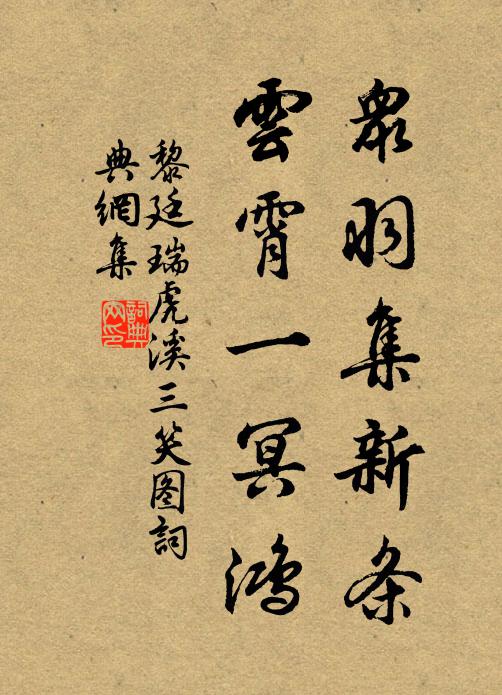 眾羽集新条
雲霄一冥鴻
黎廷瑞虎溪三笑图詞
典網集
詞典
网印